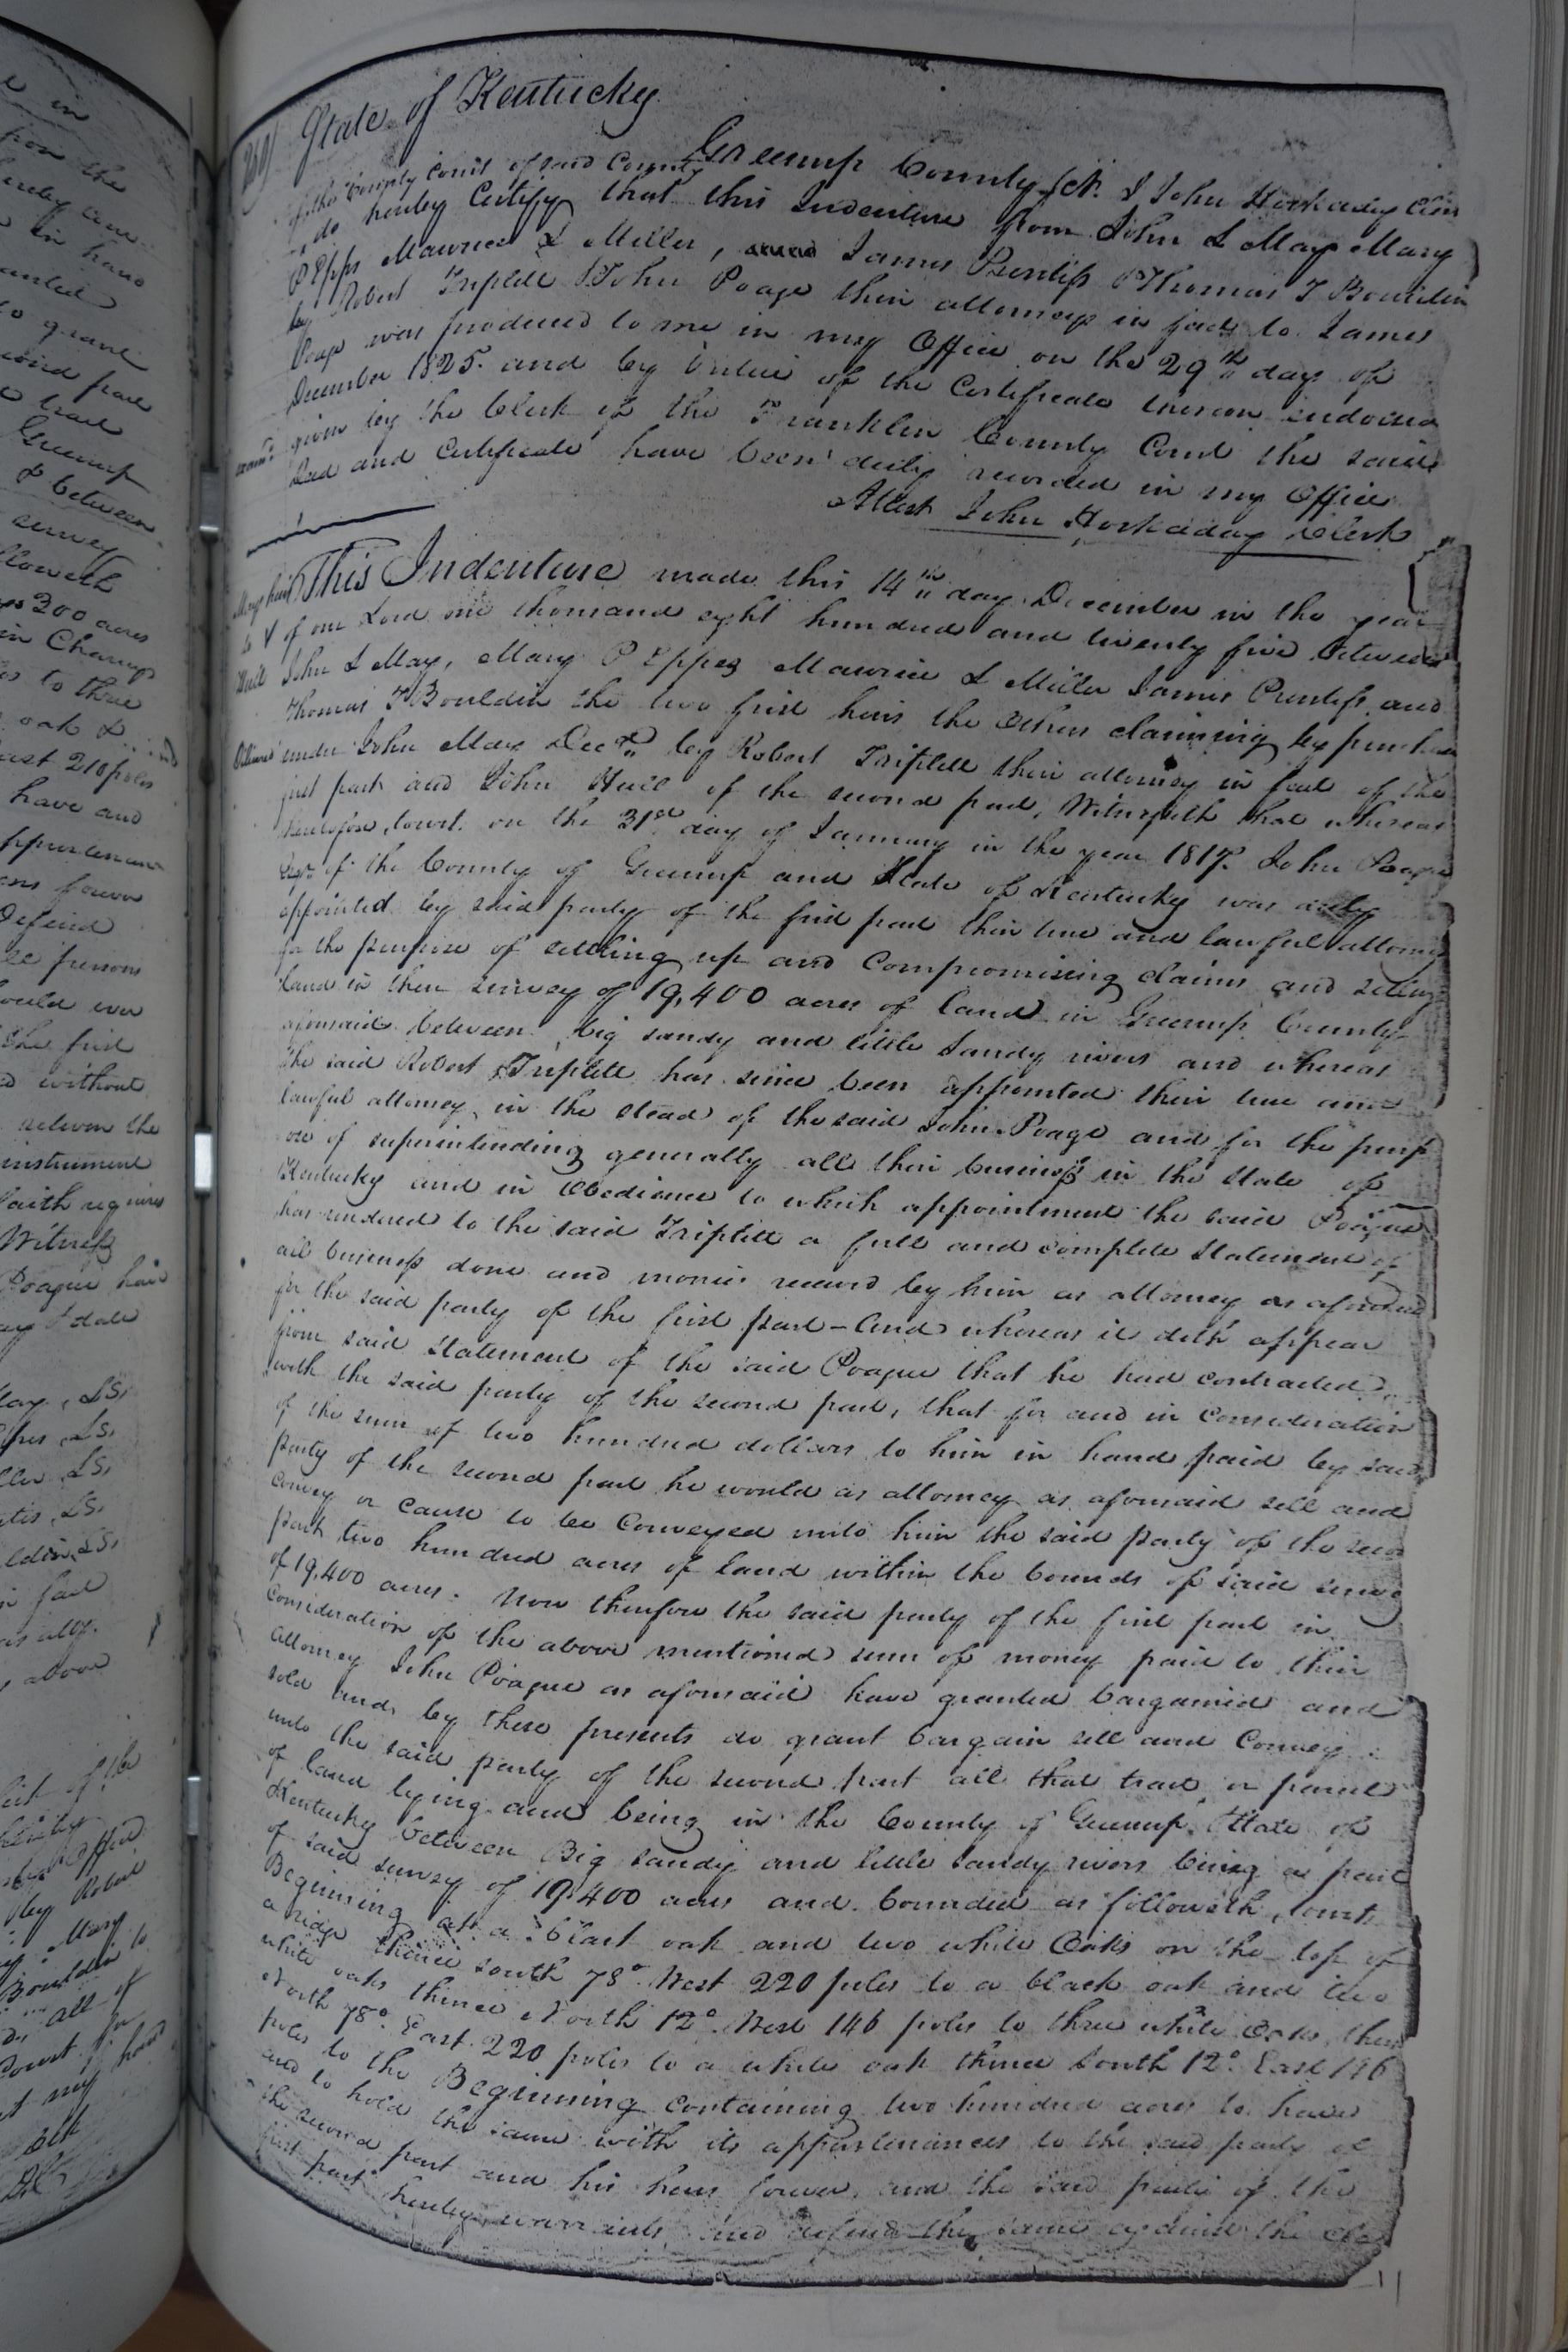 State of Kentucky
Greenup County Sct. I John Hockaday Clerk
of the County Court of said County
do hereby Certify that this Indenture from John L May Mary
P Epps Maurice L Miller, James Prentiss & Thomas T Bouldin
by Robert Triplett & John Poage their attorneys in fact to James
Poage was produced to me in my Office on the 29th day of
December 1825. and by virtue of the Certificate thereon indorsed
given by the Clerk of the Franklin County Court the said
Deed and Certificate have been duly recorded in my Office
Attest John Hockaday Clerk
This Indenture made this 14th day December in the year
of our Lord one thousand eight hundred and twenty five Between
John L May, Mary P Eppes Maurice L Miller James Prentiss and
Thomas T Bouldin the two first heirs the Others claiming by purchase
under John May Decd by Robert Triplett their attorney in fact of the
first part and John Hull of the second part, Witnesseth that whereas
heretofore, towit. on the 31st day of January in the year 1817. John Poage
Esqr of the County of Greenup and State of Kentucky was duly
appointed by said party of the first part their true and lawful attorney
for the purpose of settling up and Compromising claims and selling
land in their survey of 19,400 acres of land in Greenup County
aforesaid between big sandy and little Sandy rivers and whereas
the said Robert Triplett has since been appointed their true and
lawful attorney in the stead of the said John Poage and for the purp
ose of superintending generally all their business in the State of
Kentucky and in Obedience to which appointment the said Poague
has rendered to the said Triplett a full and complete Statement of
all business done and monies received by him as attorney as aforesaid
for the said party of the first part - And whereas it doth appear
from said Statement of the said Poague that he had contracted
with the said party of the second part, that for and in Consideration
of the sum of two hundred dollars to him in hand paid by said
party of the second part he would as attorney as aforesaid sell and
convey or cause to be Conveyed unto him the said party of the second
part two hundred acres of land within the bounds of said survey
of 19,400 acres. Now therefore the said party of the first part in
Consideration of the above mentioned sum of money paid to their
Attorney John Poague as aforesaid have granted bargained and
sold and, by these presents do grant bargain sell and Convey
unto the said party of the second part all that tract or parcel
of land lying and being in the County of Greenup State of
Kentucky between Big Sandy and little Sandy rivers being a part
of said survey of 19,400 acres and bounded as followeth, towit.
Beginning at a black oak and two white Oaks on the top of
a ridge thence South 78° West 220 poles to a black oak and two
white oaks thence North 12° West 146 poles to three white Oaks, thence
North 78° East 220 poles to a white oak thence South 12° East 146
poles to the Beginning containing two hundred acres to have
and to hold the same with its appurtenances to the said party of
the second part and his heirs forever. and the said party of the
first part hereby warrants and defend the same against the